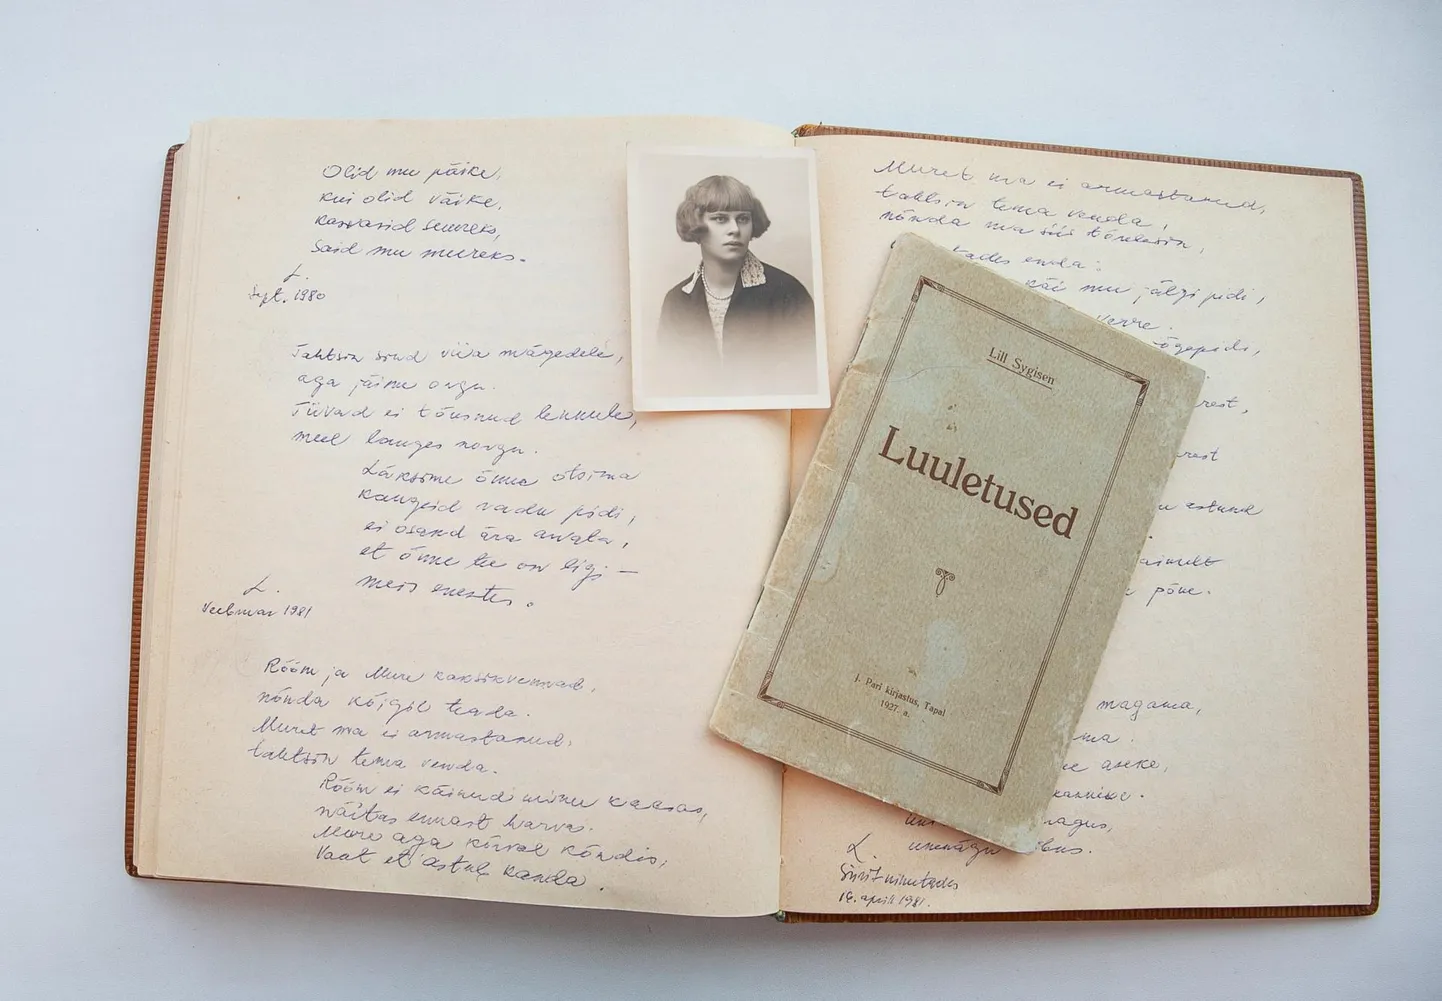 Olid mu päike,
kui olid väike,
kasvasid suureks,
said mu mureks.
L.
Sept. 1980
Tahtsin sind viia mägedele,
aga jäime orgu.
Tiivad ei tõusnud lennule,
meel langes norgu.
Läksime õnne otsima
kaugeid radu pidi,
ei osand ära arvata,
et õnne tee on ligi —
meis enestes.
L.
Veebruar 1981
Rõõm ja Mure kaksikvennad,
nõnda kõigil teada.
Muret ma ei armastanud,
tahtsin tema venda.
Rõõm ei käinud minu kaasas,
näitas ennast harva.
Mure aga kõrval kõndis,
Vaat et astub kanda.
Muret ma ei armastanud,
tahtsin tema venda,
nõnda ma siis tõrelesin,
enda:
käi mu jälgi pidi,
verre.
õgepidi,
rest,
rest
astund
põue.
magama,
ma.
aseke,
L.
Siiri nimetades
16. april 1981.
Lill Sygisen
Luuletused
J. Pari kirjastus, Tapal
1927. a.